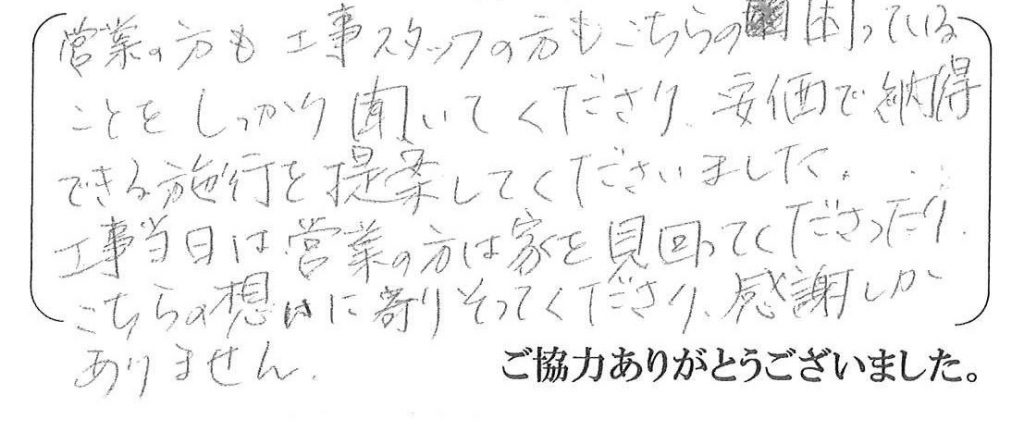 営業の方も工事スタッフの方もこちらの困っている
ことをしっかり聞いてくださり、安価で納得
できる施行を提案してくださいました。
工事当日は営業の方は家を見回ってくださったり、
こちらの想いに寄りそってくださり、感謝しか
ありません。
ご協力ありがとうございました。